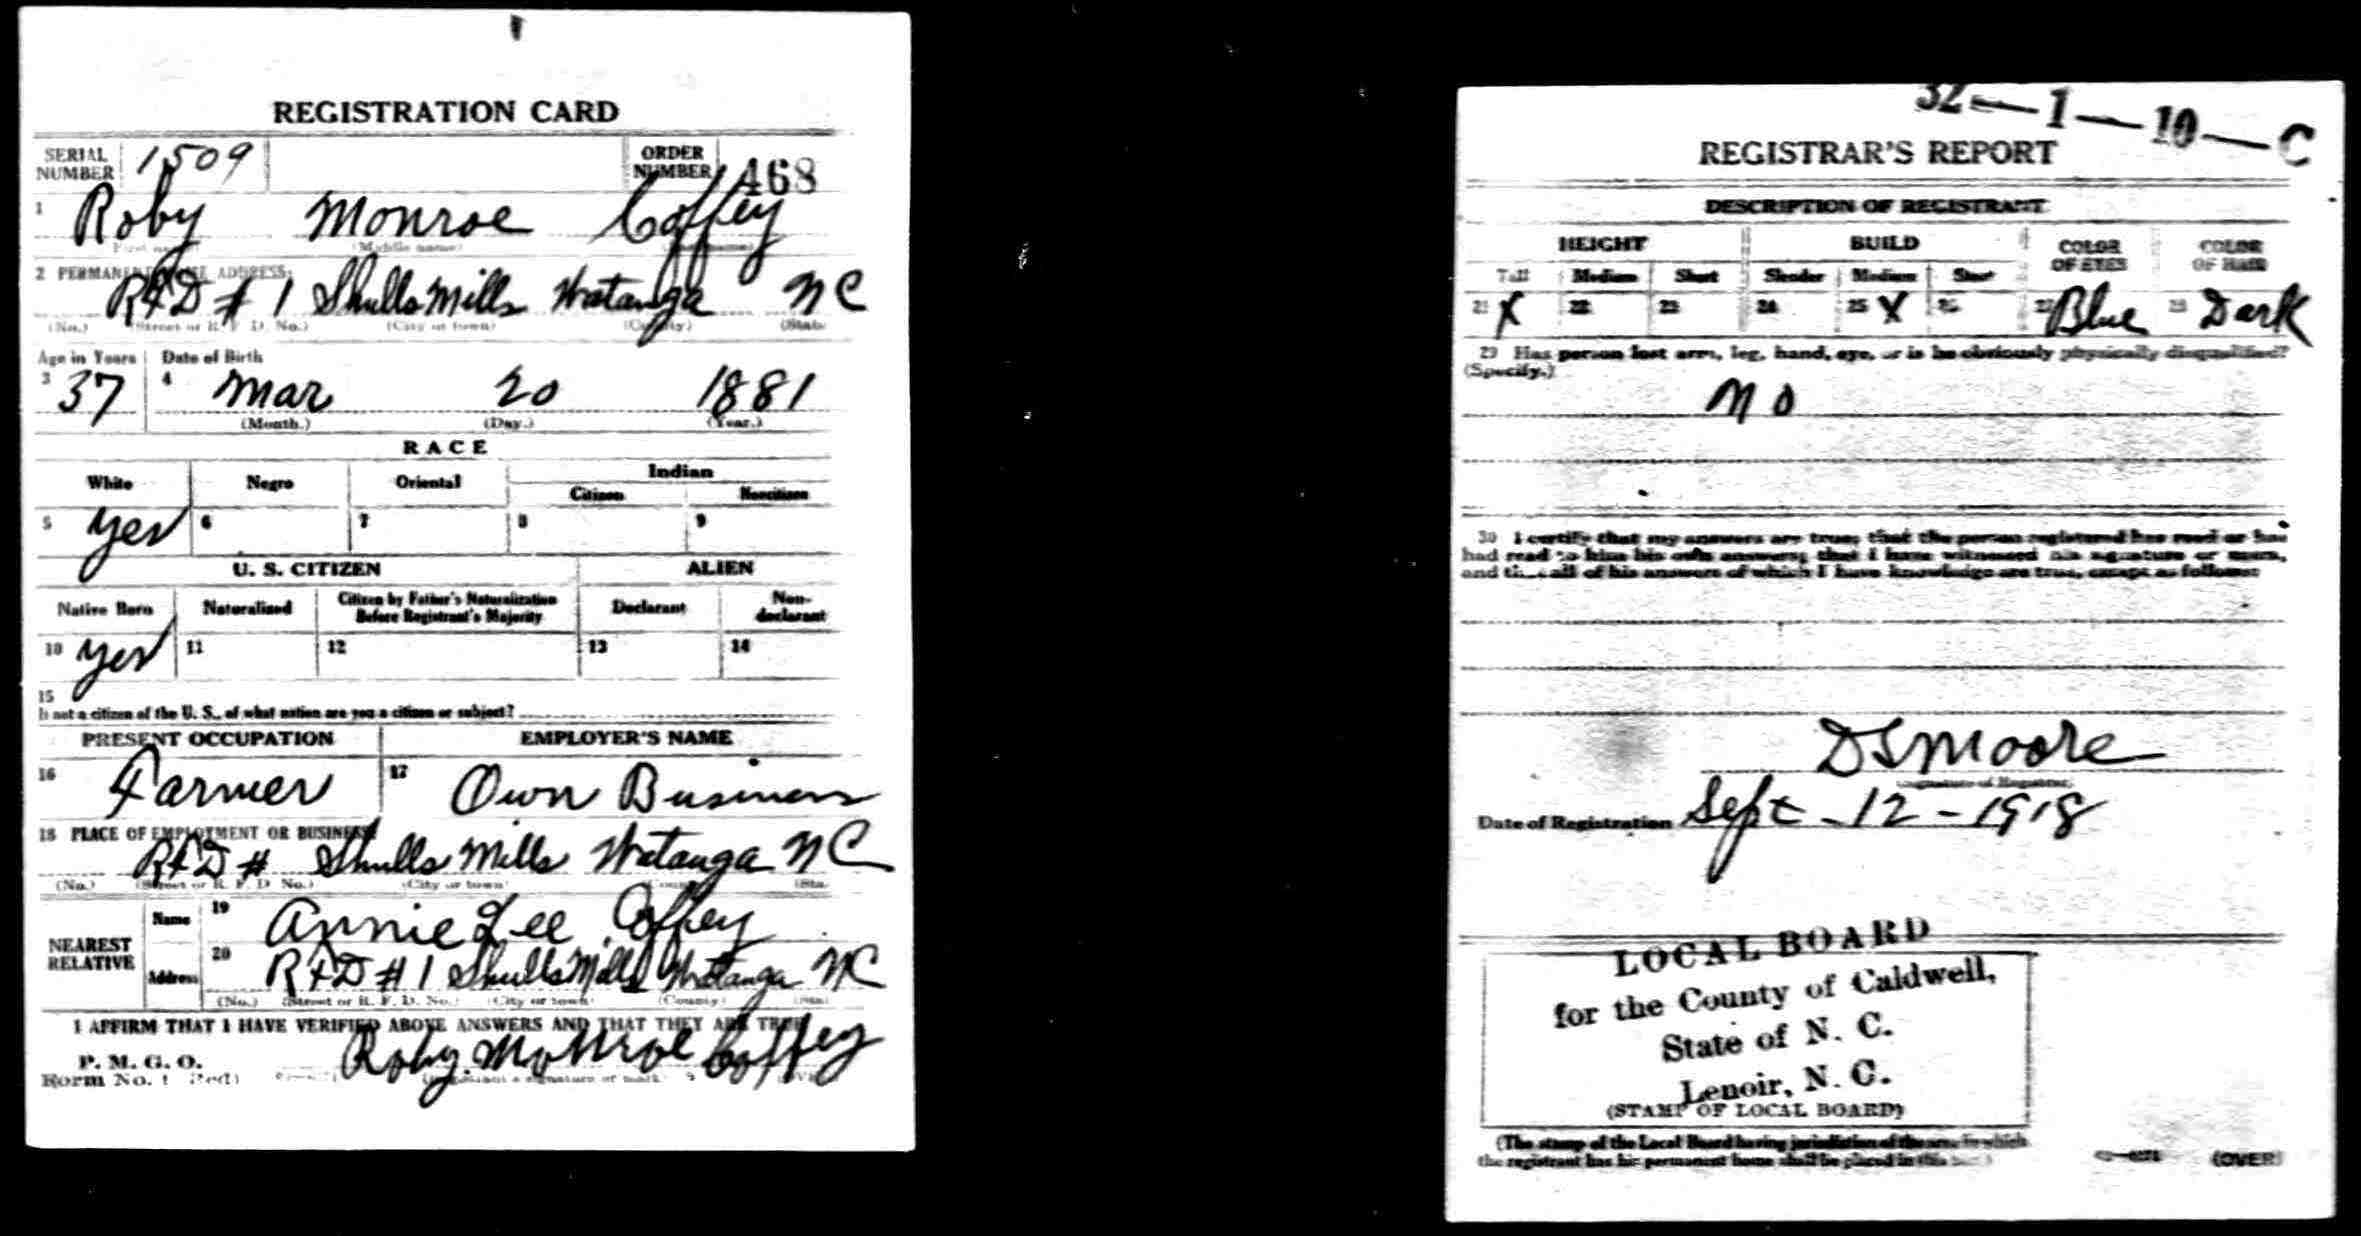 REGISTRATION CARD
SERIAL NUMBER 1509 ORDER NUMBER 468
1 Roby Monroe Coffey
(Middle name)
2 PERMANENT HOME ADDRESS:
RFD # 1 Shulls Mills Watauga NC
(No.) (Street or R. F. D. No.) (City or town) (County) (State)
Age in Years Date of Birth
3 37 4 Mar 20 1881
(Month.) (Day.) (Year.)
RACE
White Negro Oriental Indian
Citizen Noncitizen
5 Yes 6 7 8 9
U. S. CITIZEN ALIEN
Native Born Naturalized Citizen by Father's Naturalization Before Registrant's Majority Declarant Non-declarant
10 Yes 11 12 13 14
15
If not a citizen of the U. S., of what nation are you a citizen or subject?
PRESENT OCCUPATION EMPLOYER'S NAME
16 Farmer 17 Own Business
18 PLACE OF EMPLOYMENT OR BUSINESS:
RFD # Shulls Mills Watauga NC
(No.) (Street or R. F. D. No.) (City or town)
NEAREST RELATIVE Name 19 Annie Lee Coffey
Address 20 RFD # 1 Shulls Mills Watauga NC
(No.) (Street or R. F. D. No.) (City or town) (County)
I AFFIRM THAT I HAVE VERIFIED ABOVE ANSWERS AND THAT THEY ARE TRUE
P. M. G. O.
Form No. 1 (Red) Roby Monroe Coffey
32—1—10—C
REGISTRAR'S REPORT
DESCRIPTION OF REGISTRANT
HEIGHT BUILD COLOR OF EYES COLOR OF HAIR
Tall Medium Short Slender Medium Stout
21 X 22 23 24 25 X 26 27 Blue 28 Dark
29 Has person lost arm, leg, hand, eye, or is he obviously physically disqualified?
(Specify.)
No
30 I certify that my answers are true; that the person registered has read or has
had read to him his own answers; that I have witnessed his signature or mark,
and that all of his answers of which I have knowledge are true, except as follows:
D S Moore
(Signature of Registrar)
Date of Registration Sept - 12 - 1918
LOCAL BOARD
for the County of Caldwell,
State of N. C.
Lenoir, N. C.
(STAMP OF LOCAL BOARD)
(The stamp of the Local Board having jurisdiction of the area in which
the registrant has his permanent home shall be placed in this box.)
(OVER)